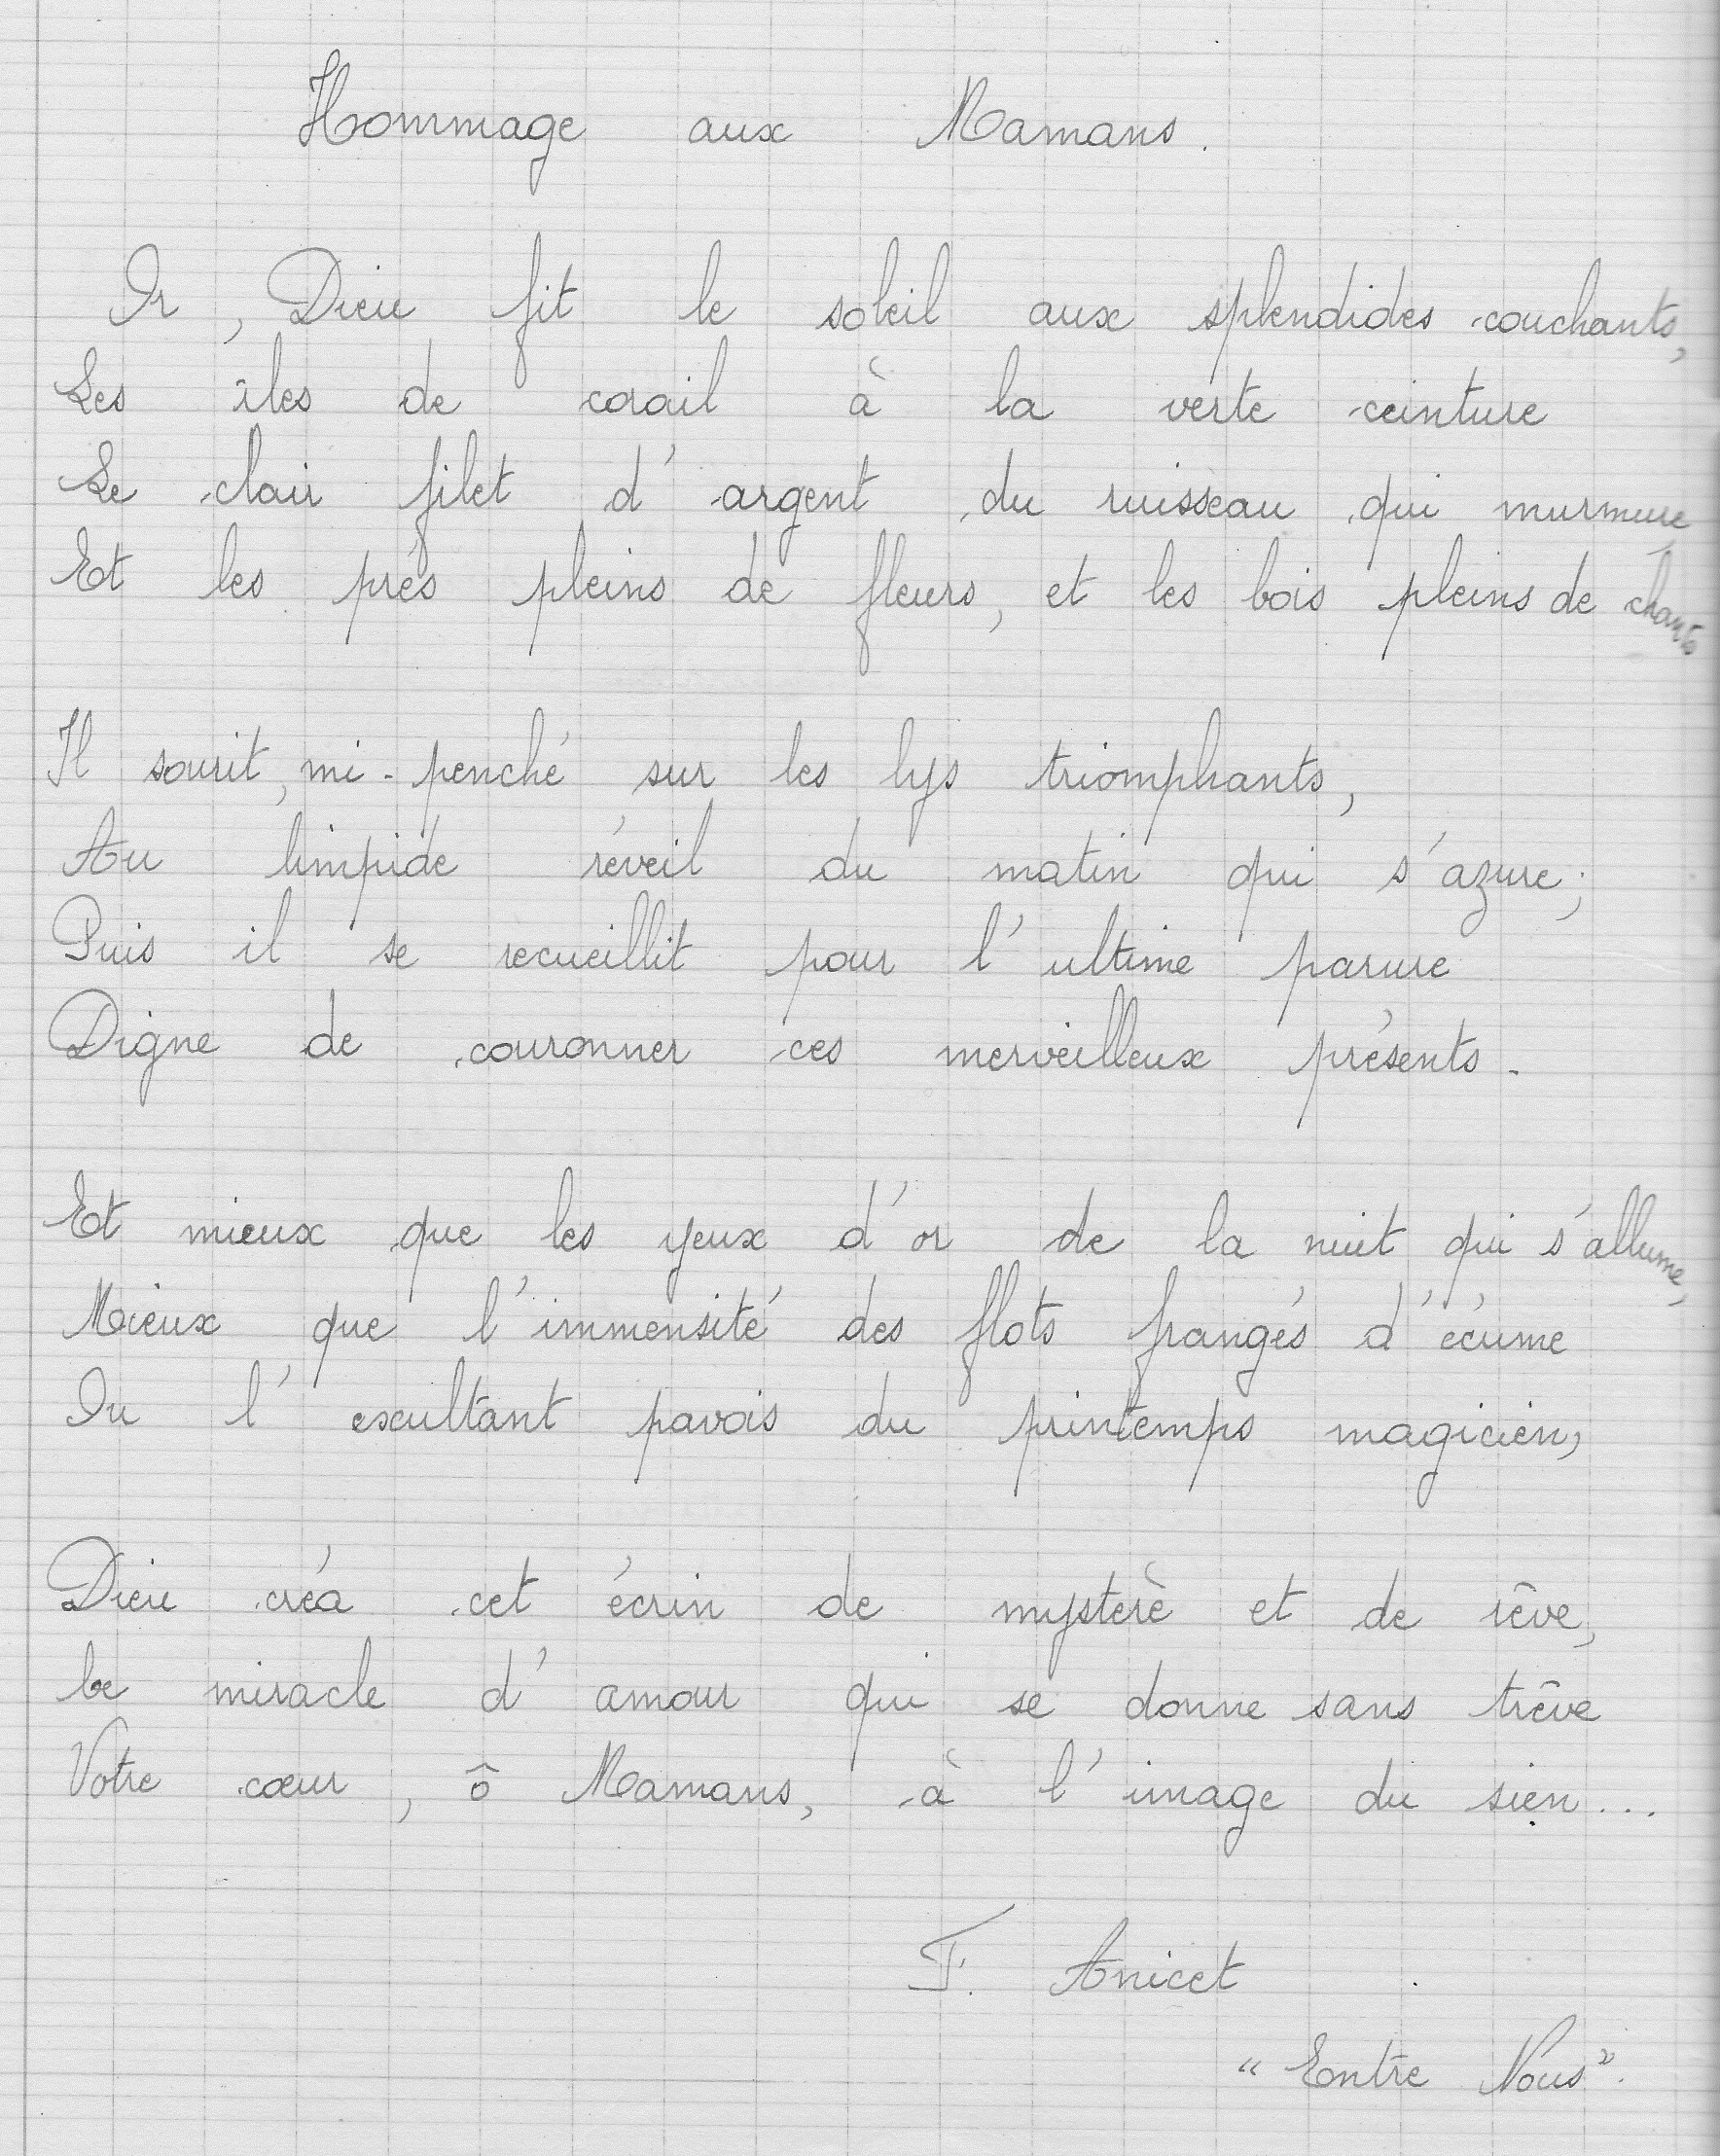 Hommage aux Mamans.
Or, Dieu fit le soleil aux splendides couchants,
Les îles de corail à la verte ceinture
Le clair filet d'argent du ruisseau qui murmure
Et les prés pleins de fleurs, et les bois pleins de chants
Il sourit, mi-penché sur les lys triomphants,
Au limpide réveil du matin qui s'azure;
Puis il se recueillit pour l'ultime parure
Digne de couronner ces merveilleux présents.
Et mieux que les yeux d'or de la nuit qui s'allume,
Mieux que l'immensité des flots frangés d'écume
Ou l'exultant pavois du printemps magicien,
Dieu créa cet écrin de mystère et de rêve,
Ce miracle d'amour qui se donne sans trêve
Votre cœur, ô Mamans, à l'image du sien...
F. Anicet
"Entre Nous".